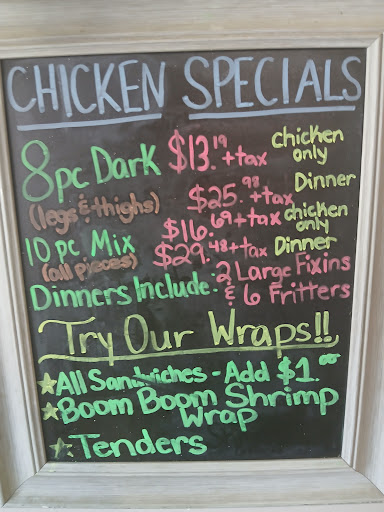 CHICKEN SPECIALS
8pc Dark $13.19 +tax chicken only
(legs & thighs) $25.98 +tax Dinner
10 pc Mix $16.69 +tax chicken only
(all pieces) $29.48 +tax Dinner
Dinners Include: 2 Large Fixins
& 6 Fritters
Try Our Wraps!!
All Sandwiches - Add $1.00
Boom Boom Shrimp
Wrap
Tenders